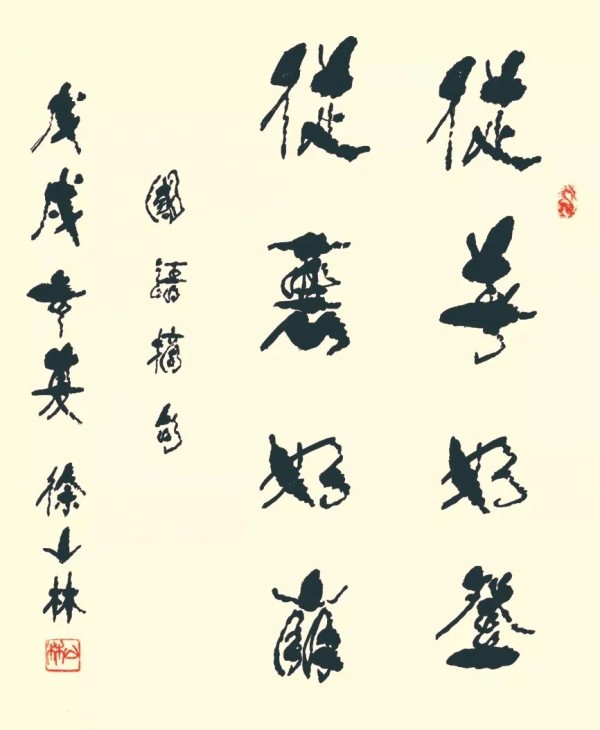 從善如登
從惡如崩
國語摘句
戊戌年夏 徐山林